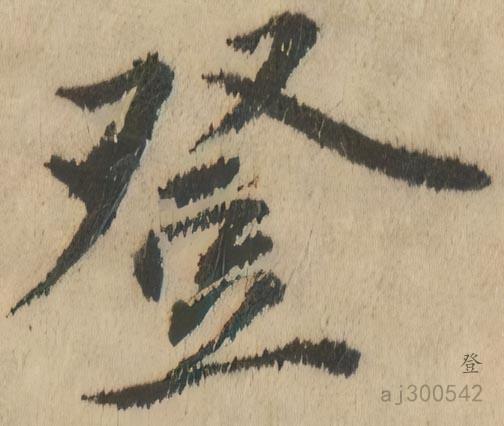 登
登
aj300542